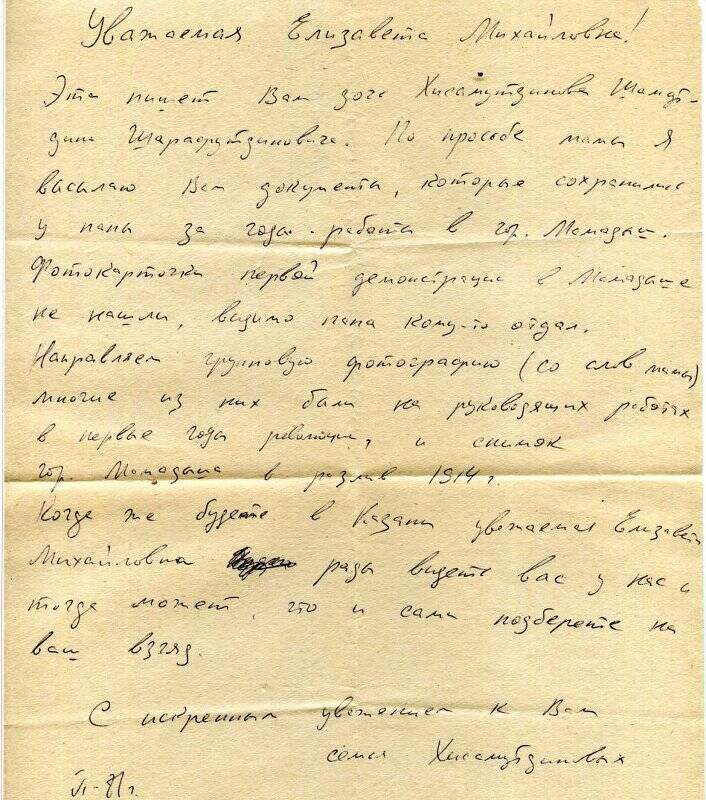 Уважаемая Елизавета Михайловна!
Эта пишет Вам дочь Хисамутдинова Шамут-
дина Шарафутдиновича. По просьбе мамы я
высылаю Вам документы, которые сохранились
у папы за годы работы в гор. Мамадыш.
Фотокарточки первой демонстрации в Мамадыше
не нашли, видимо папа кому-то отдал.
Направляем групповую фотографию (со слов мамы)
многие из них были на руководящих работах
в первые годы революции, и снимок
гор. Мамадыша в разлив 1914 г.
Когда же будете в Казани уважаемая Елизавета
Михайловна рады видеть вас у нас и
тогда может, что и сами подберете на
ваш взгляд.
С искренным уважением к Вам
семья Хисамутдиновых